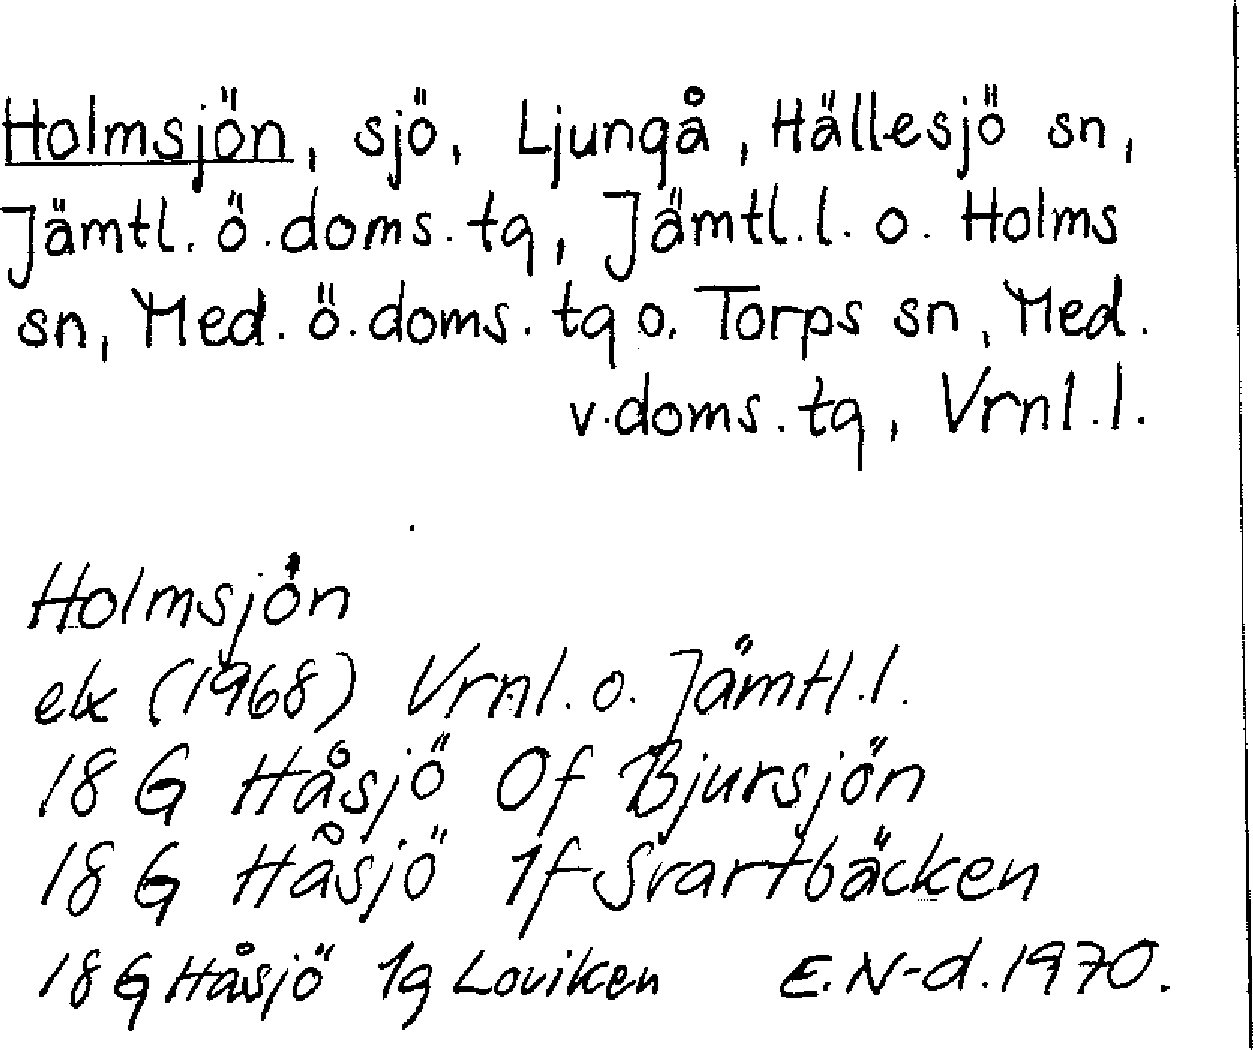 Holmsjön, sjö, Ljungå, Hällesjö sn,
Jämtl. ö. doms. tg, Jämtl. l. o. Holms
sn, Med. ö. doms. tg o. Torps sn, Med.
v. doms. tg, Vrnl. l.
Holmsjön
ek (1968) Vrnl. o. Jämtl. l.
18 G Håsjö 0f Bjursjön
18 G Håsjö 1f Svartbäcken
18 G Håsjö 1g Loviken E. N-d. 1970.